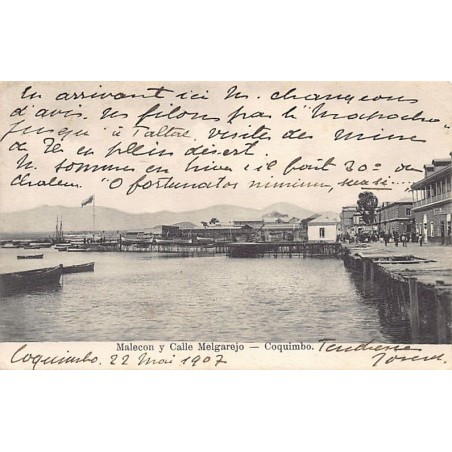 En arrivant ici N. changeons
d'avis. ns filons par le "Mapocho"
jusqu'à Taltal visite des mines
de en plein désert
N. sommes en hiver & il fait 30° de
chaleur "O fortunatos nimium, sua si...
Malecon y Calle Melgarejo — Coquimbo.
Coquimbo. 22 Mai 1907